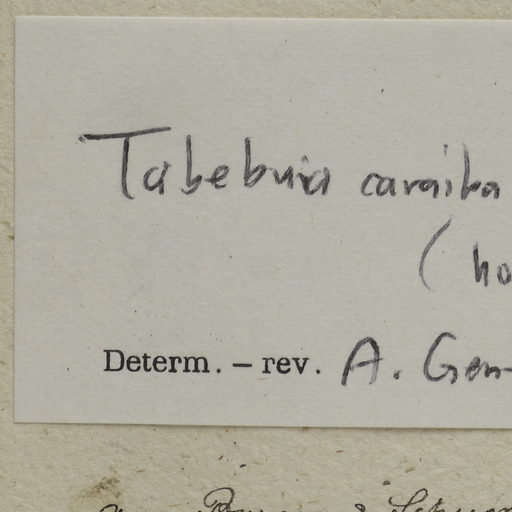 Tabebuia caraiba
( ho
Determ. – rev. A. Gen